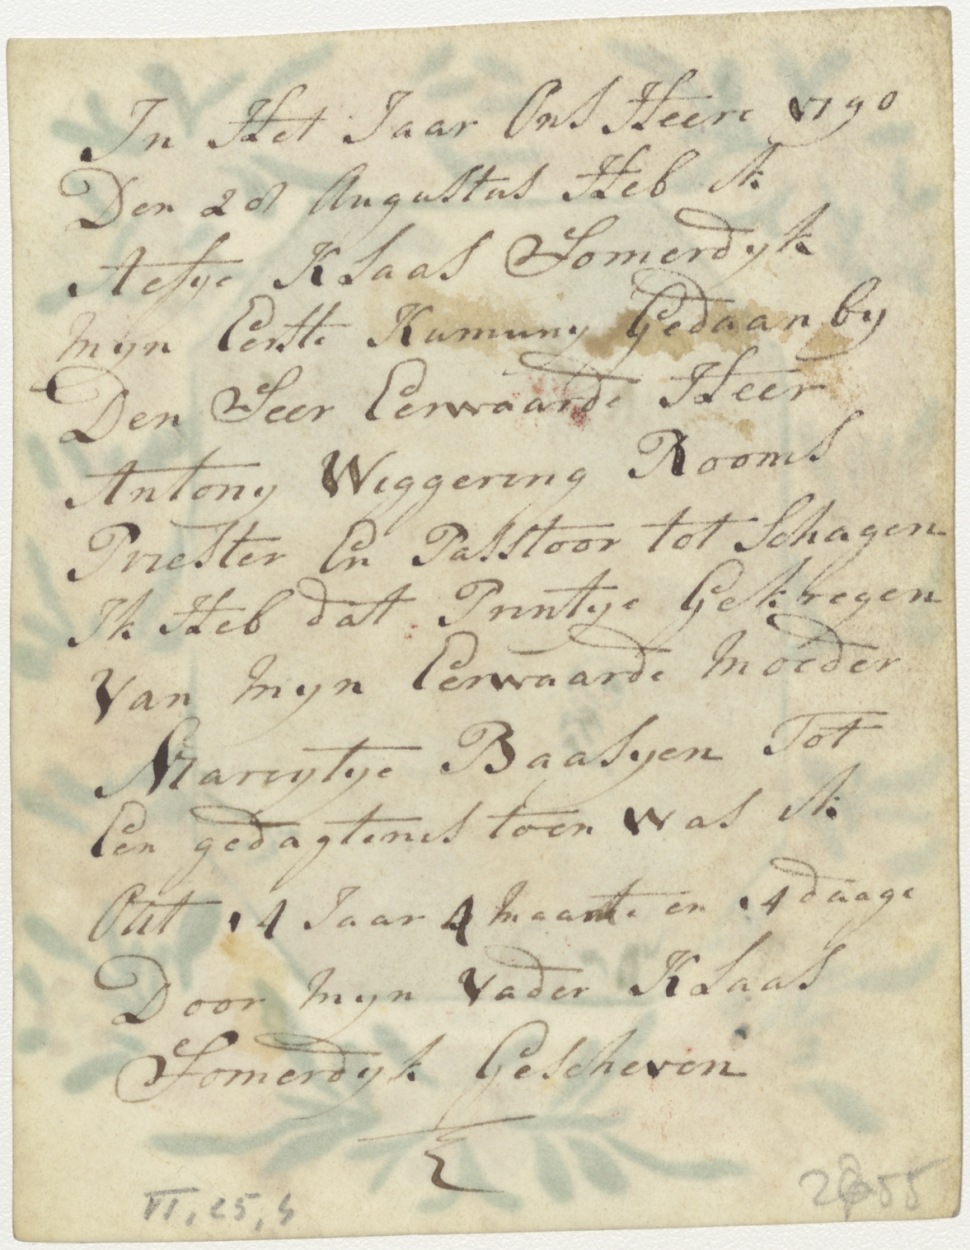 In Het Jaar Ons Heere 1790
Den 28 Augustus Heb Ik
Aefye Klaas Somerdyk
Myn Eerste Kumuny Gedaan by
Den Seer Eerwaarde Heer
Antony Wiggering Rooms
Priester En Passtoor tot Schagen
Ik Heb dat Printye Gekregen
Van Myn Eerwaarde Moeder
Mareytye Baasyen Tot
Een gedagtenis toen was ik
Out 14 Jaar 4 Maante en 14 daage
Door Myn Vader Klaas
Somerdyk Gescheven
VI, 25, 4